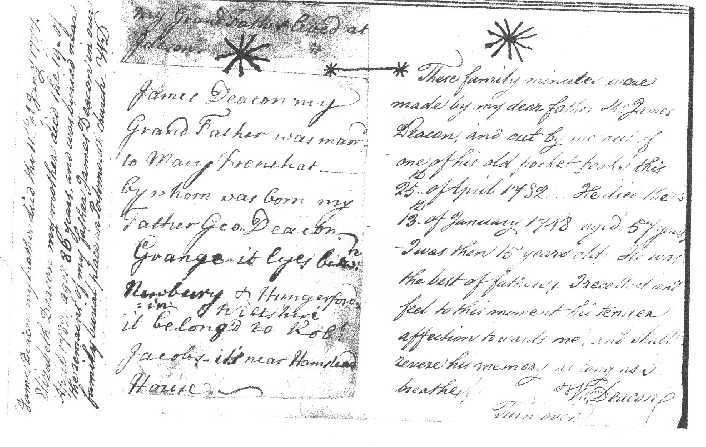 my Grand Father lived at
James Deacon my
Grand Father was marrd
to Mary
by whom was born my
Father Geo. Deacon
Grange it lyes betwn
Newbury & Hungerford
in Wiltshire
it belong'd to Robt
Jacobs it's near Hamstead
House
These family minutes were
made by my dear father Mr James
Deacon, and cut by me out of
one of his old pocket books this
25th of April 1782. He died the
13th of January 1748 aged 57 years
I was then 15 years old He was
the best of fathers, I recollect and
feel to this moment his tender
affection towards me, and shall
revere his memory as long as I
breathe.
W. Deacon
Turn over
James Deacon my father died the 13th of Jany
Elizabeth Deacon my mother died the 19th of
aged 86 years, and was buried near
the remains of my father James Deacon in our
family burial place in church